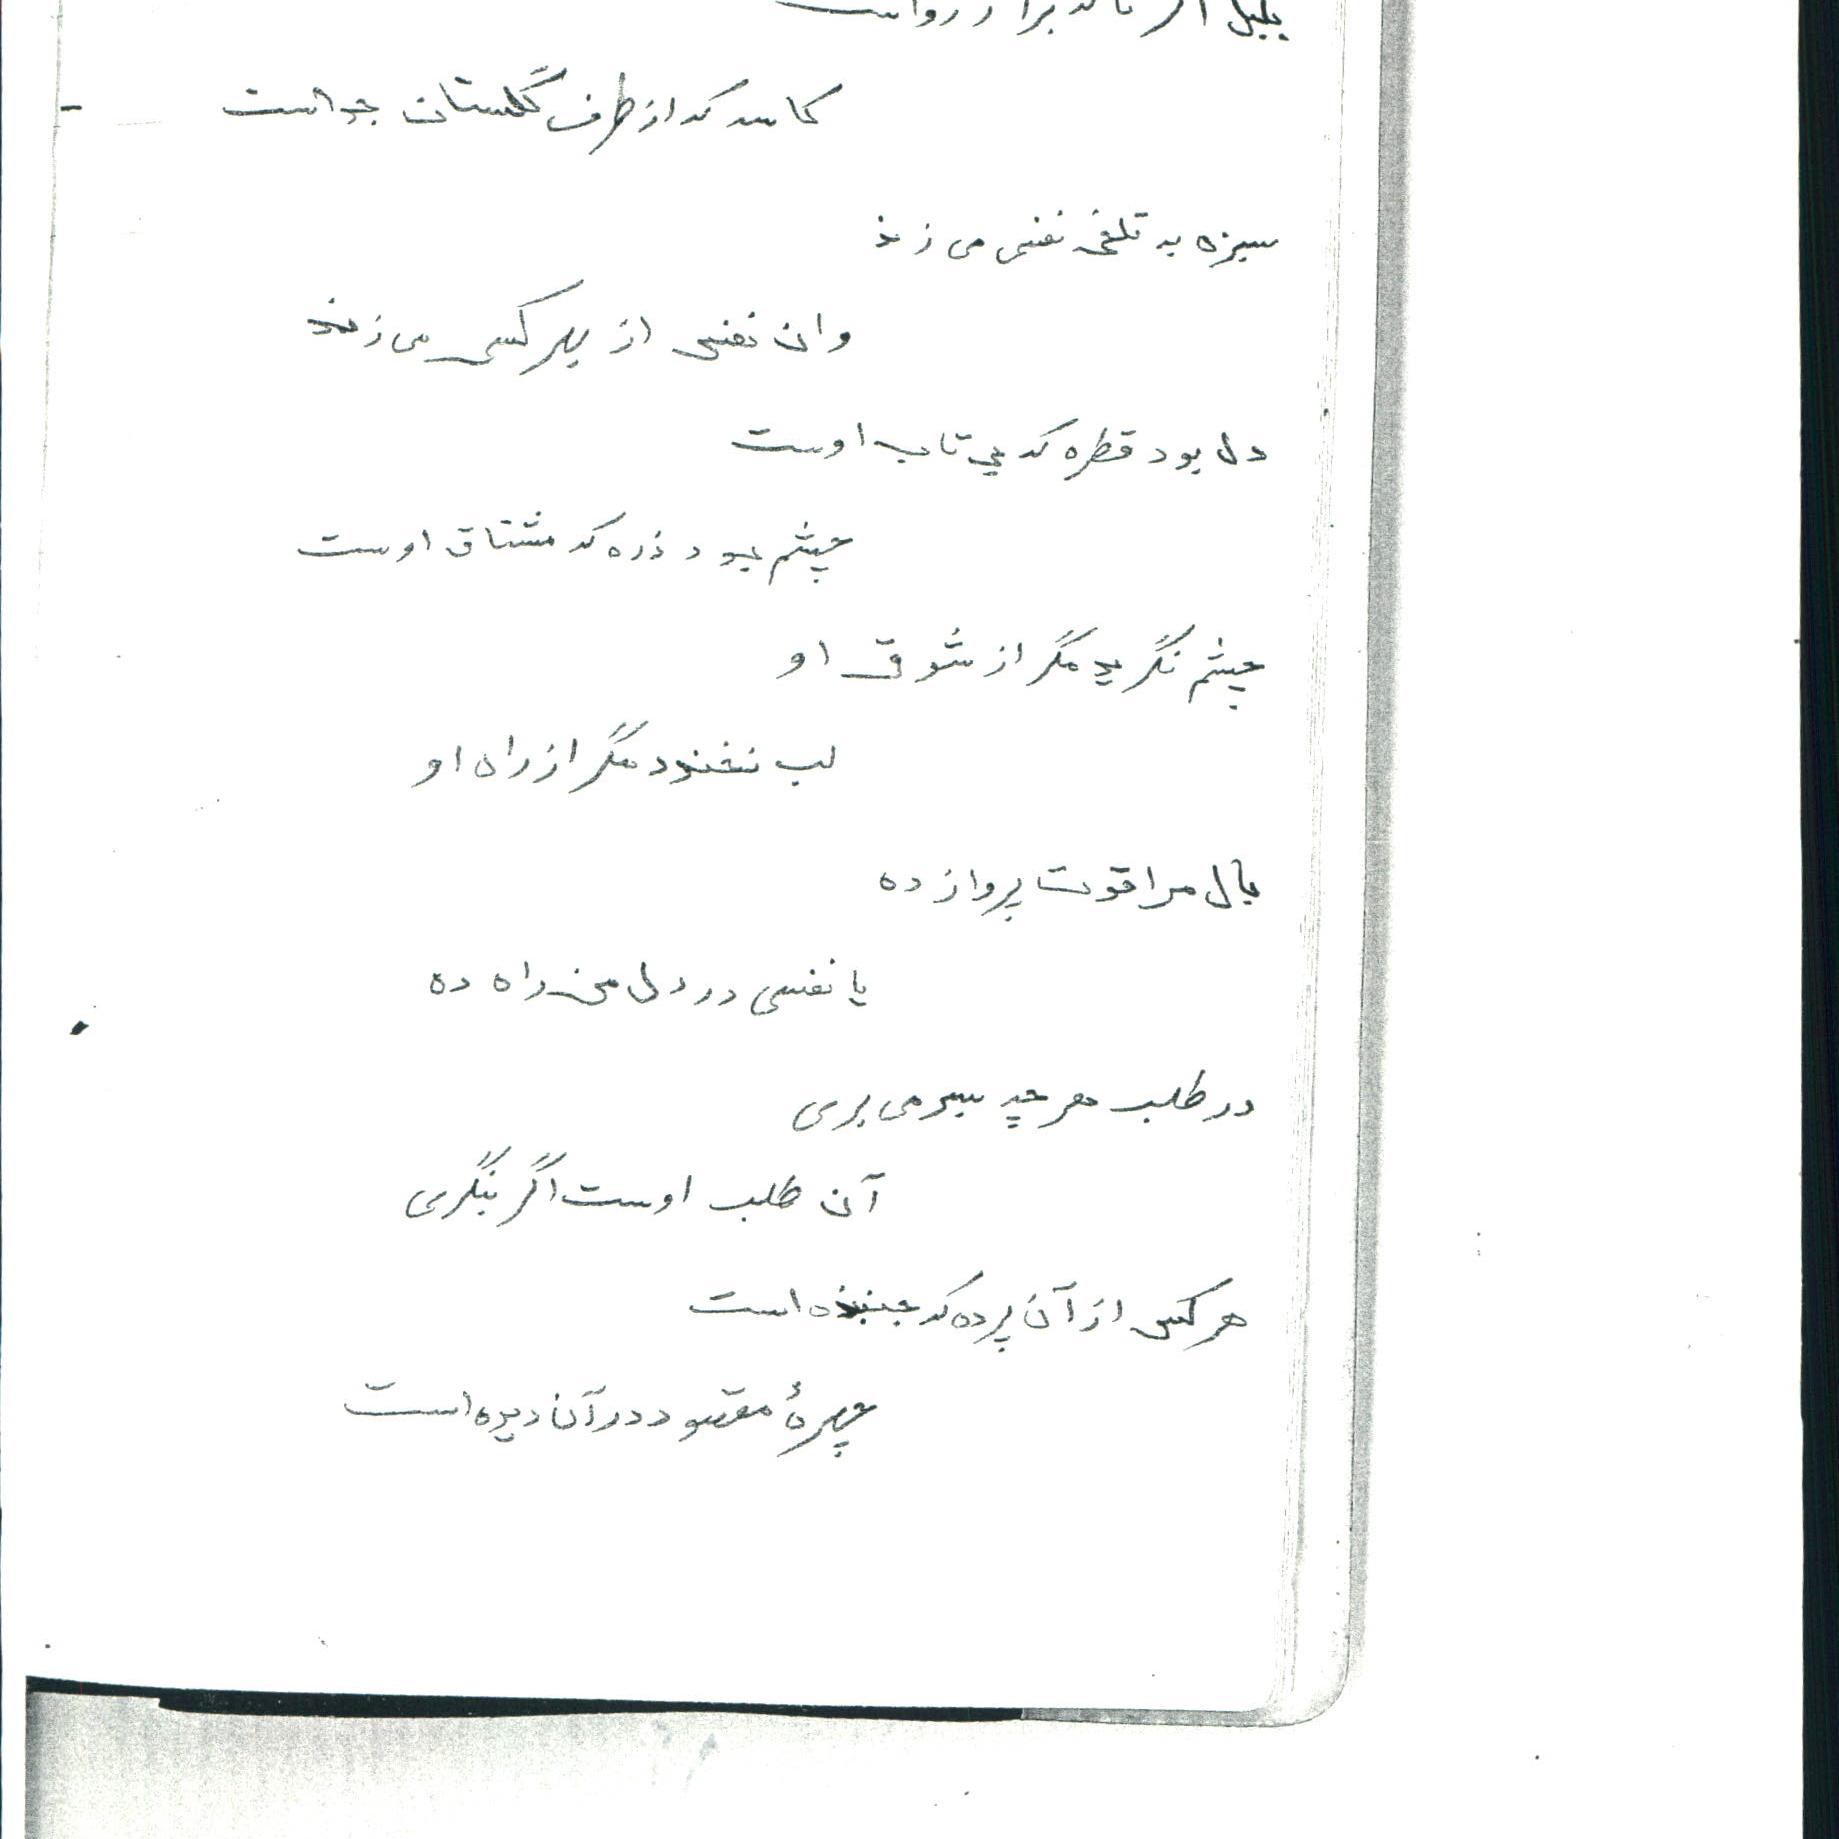 بلبل اگر نالد بزار رواست
کاسد که از طرف گلستان جداست
سبزه به تلخی نفسی می زند
وان نفسی از بهر کسی می زند
دل بود قطره که بی تاب اوست
چشم بود ذره که مشتاق اوست
چشم نگرید مگر از شوق او
لب نخندد مگر از راه او
بال مرا قوت پرواز ده
یا نفسی در دل من راه ده
در طلب هر چه بسر می بری
آن طلب اوست اگر بنگری
هر کس از آن پرده که جنبنده است
چهرهٔ مقصود در آن دیده است